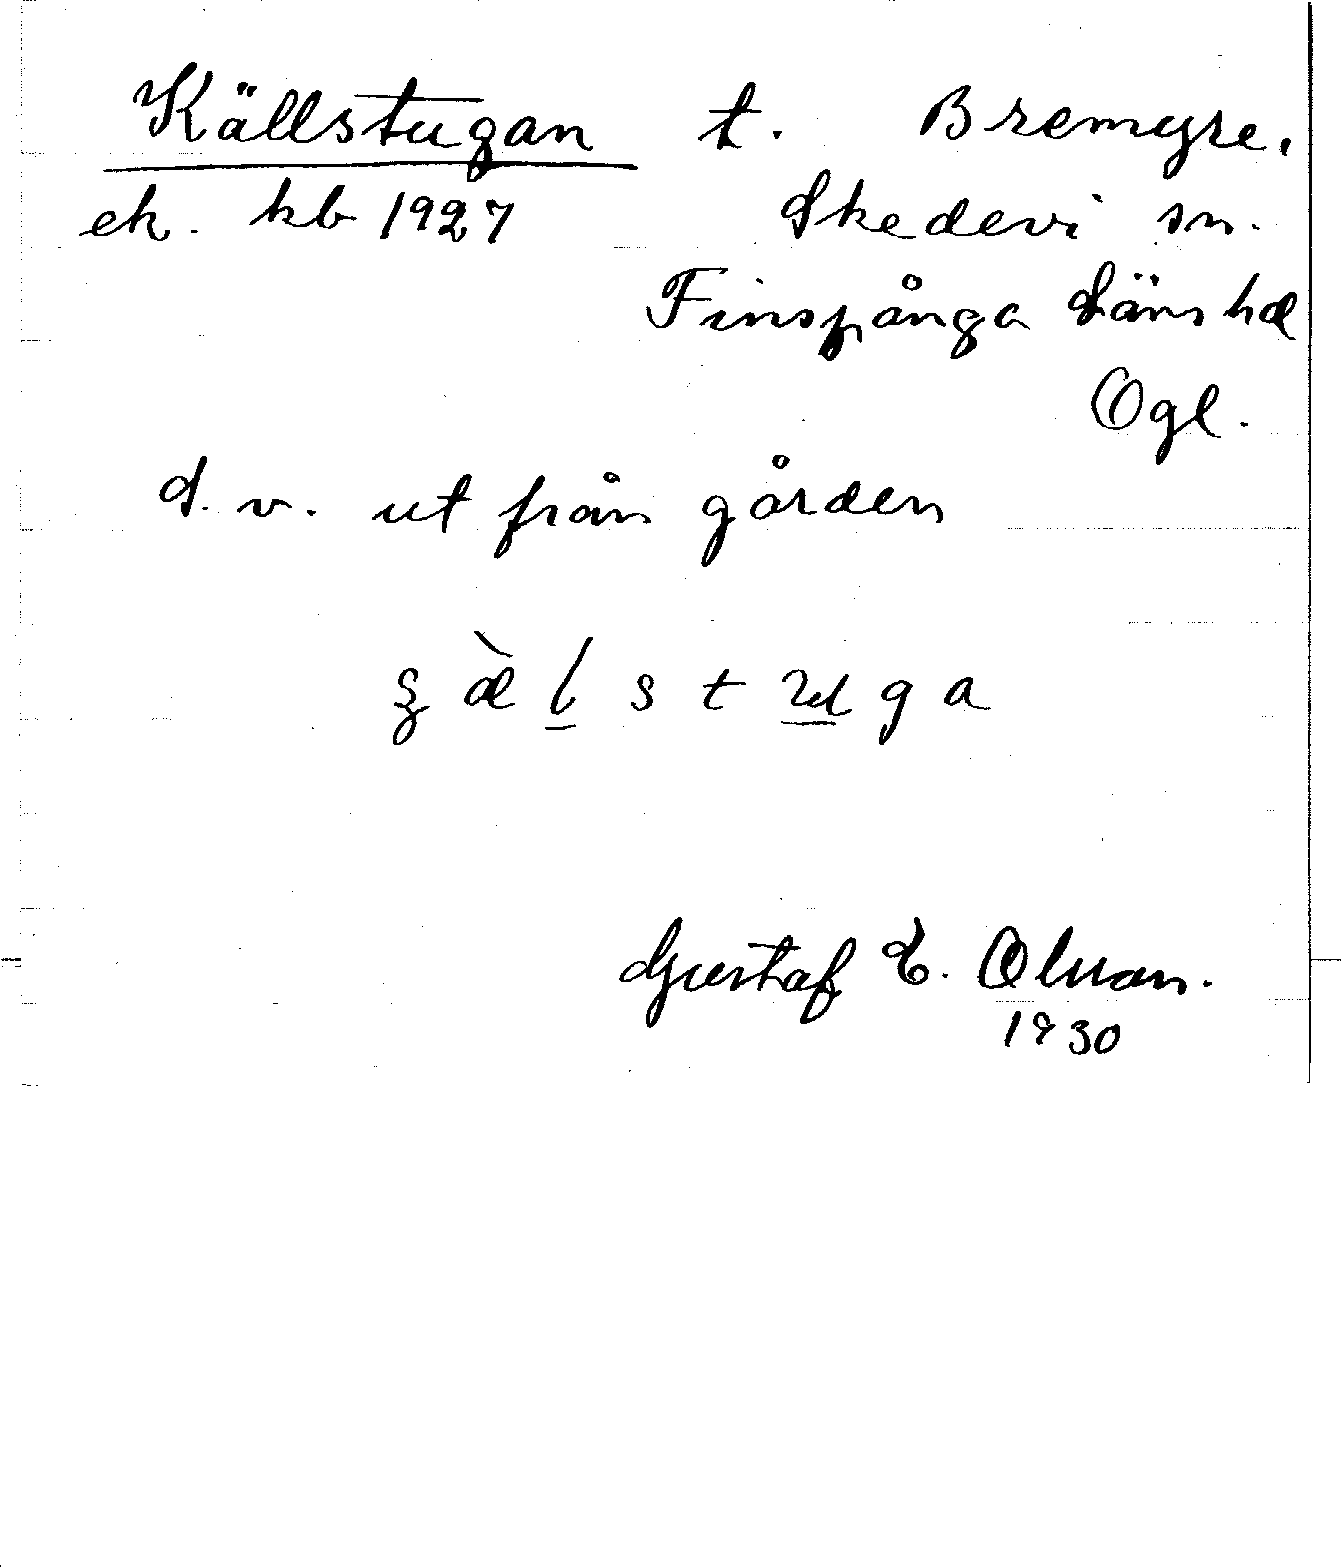 Källstugan t. Bremyre.
ek. kb 1927 Skedevi sn.
Finspånga Läns hd
Ögl.
S. v. ut från gården
Gustaf E. Olsson.
1930